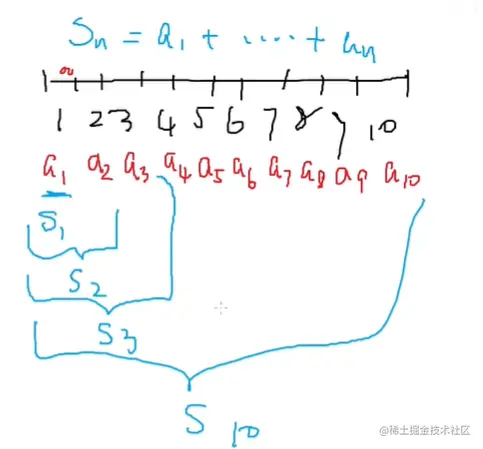 Sn = a1 + ..... + an
1 2 3 4 5 6 7 8 9 10
a1 a2 a3 a4 a5 a6 a7 a8 a9 a10
S1
S2
S3
S 10
@稀土掘金技术社区